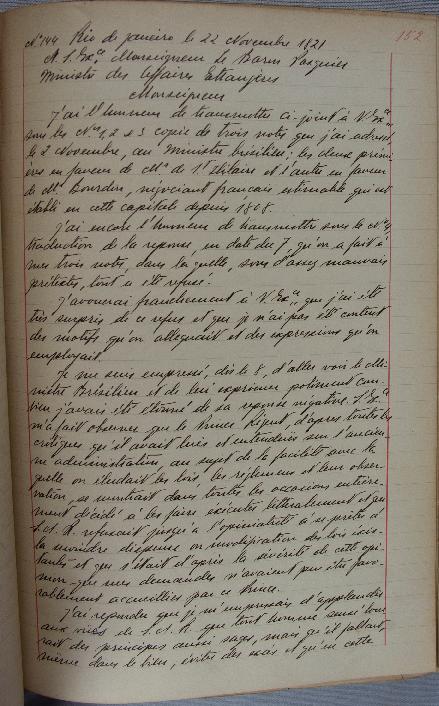 152
Nº 144 Rio de janeiro le 22 Novembre 1821
A. S. Exª Monseigneur le Baron Pasquier
Ministre des Affaires Etrangères
Monseigneur
J'ai l'honneur de transmettre ci-joint à V. Exª,
sous les Nºs 1, 2 & 3 copie de trois notes que j'ai adressé
le 2 Novembre, au Ministre brésilien; les deux premi
ères en faveur de Mr de St Hilaire et l'autre en faveur
de Mr Bourdon, négociant français estimable qui est
établi en cette capitale depuis 1808.
J'ai encore l'honneur de transmettre sous le Nº 4
traduction de la reponse, en date du 7, qu'on a fait à
mes trois notes, dans laquelle, sous d'assez mauvais
prétextes, tout a été refusé.
J'avouerai franchement à V. Exª que j'ai été
très surpris de ce refus et que je n'ai pas été content
des motifs qu'on alleguait et des expressions qu'on
employait.
Je me suis empressé, dès le 8, d'aller voir le Mi-
nistre Brésilien et de lui exprimer poliment com-
bien j'avais été étonné de sa reponse négative. S. Exª
m'a fait observer que le Prince Régent, d'après toutes les
critiques qu'il avait lues et entendues sur l'ancien-
ne administration, au sujet de la facilité avec la
quelle on éludait les lois, les réglemens et leur obser-
vation, se montrait dans toutes les occasions entière-
ment décidé à les faire exécuter litteralement et que
S. A. R. refusait jusqu'à l'opiniatreté à se prêter à
la moindre dispense ou modification des lois exis-
tantes et que s'était d'après la sévérité de cette opi-
nion que mes demandes n'avaient pu être favo-
rablement accueillies par ce Prince.
J'ai repondu que je m'empressais d'applaudir
aux vües de S. A. R. que tout homme sensé
des principes aussi sages, mais qu'il fallait,
même dans le bien, éviter des excès et qu'en cette